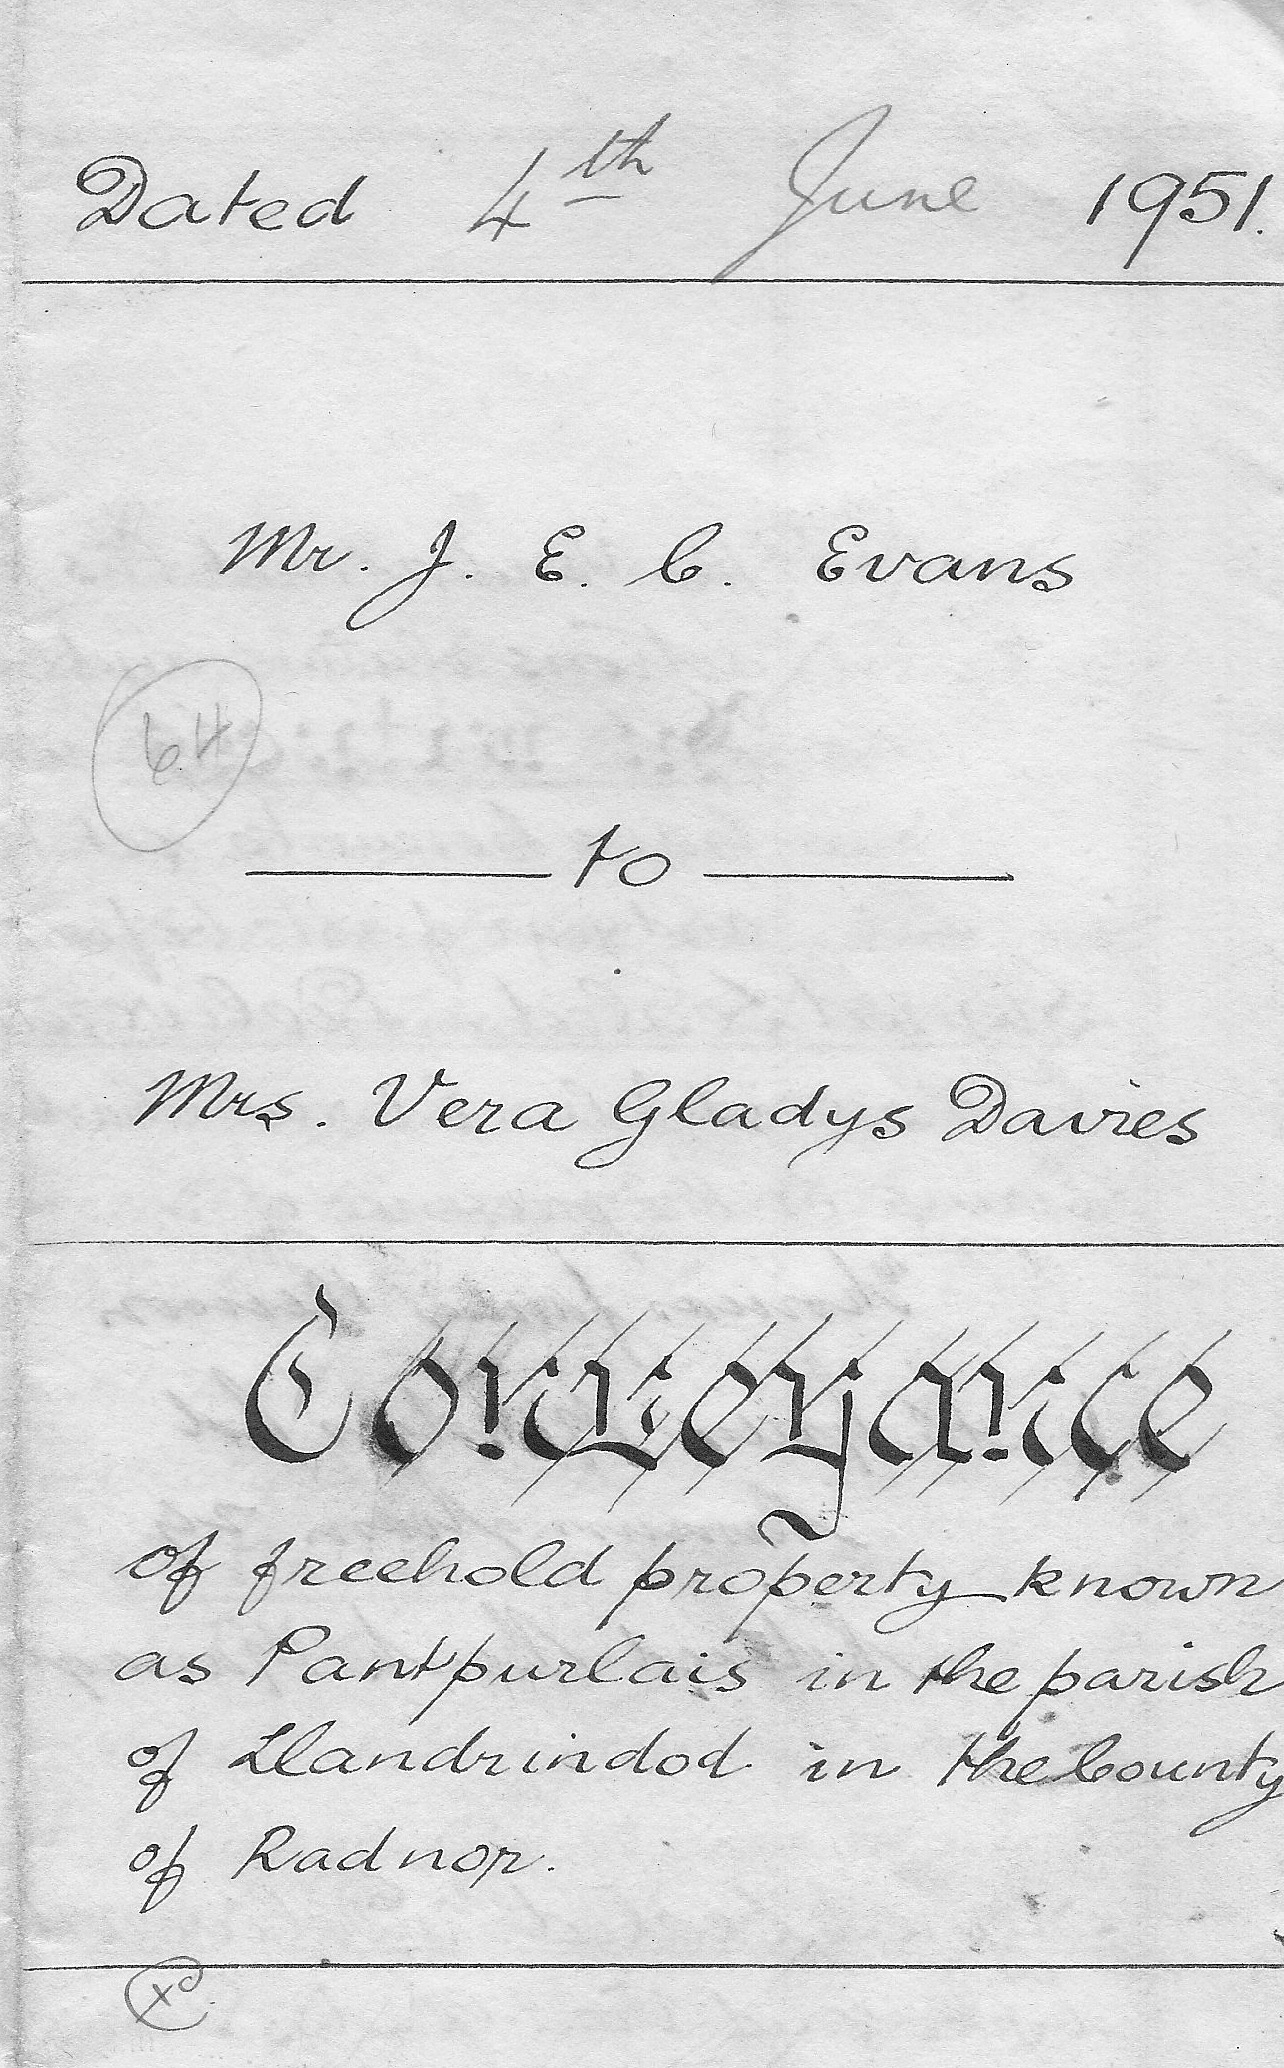 Dated 4th June 1951.
Mr. J. E. C. Evans
64
to
Mrs. Vera Gladys Davies
Conveyance
of freehold property known
as Pantpurlais in the parish
of Llandrindod in the County
of Radnor.